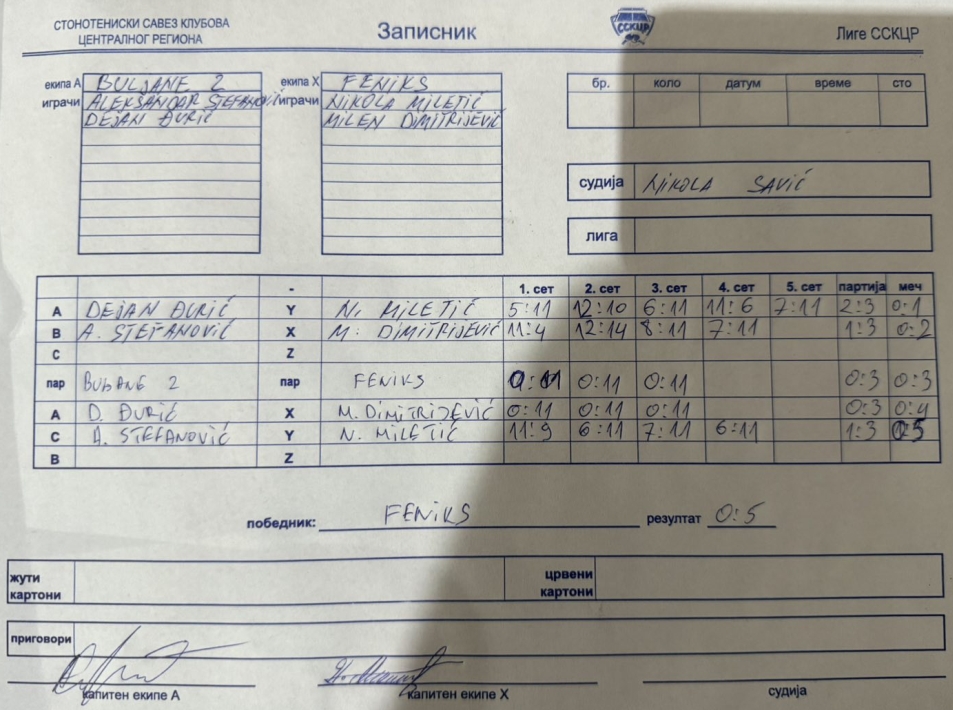 СТОНОТЕНИСКИ САВЕЗ КЛУБОВА
ЦЕНТРАЛНОГ РЕГИОНА
Записник
ССКЦР
Лиге ССКЦР
екипа А BULJANE 2 екипа X FENIKS
играчи ALEKSANDAR STEFANOVIĆ играчи NIKOLA MILETIĆ
DEJAN ĐURIĆ MILEN DIMITRIJEVIĆ
бр. коло датум време сто
судија NIKOLA SAVIĆ
лига
- 1. сет 2. сет 3. сет 4. сет 5. сет партија меч
А DEJAN ĐURIĆ Y N. MILETIĆ 5:11 12:10 6:11 11:6 7:11 2:3 0:1
B A. STEFANOVIĆ X M. DIMITRIJEVIĆ 11:4 12:14 8:11 7:11 1:3 0:2
C Z
пар BULJANE 2 пар FENIKS 0:11 0:11 0:11 0:3 0:3
А D. ĐURIĆ X M. DIMITRIJEVIĆ 0:11 0:11 0:11 0:3 0:4
C A. STEFANOVIĆ Y N. MILETIĆ 11:9 6:11 7:11 6:11 1:3 0:5
B Z
победник: FENIKS резултат 0:5
жути картони
црвени картони
приговори
капитен екипе А капитен екипе X судија